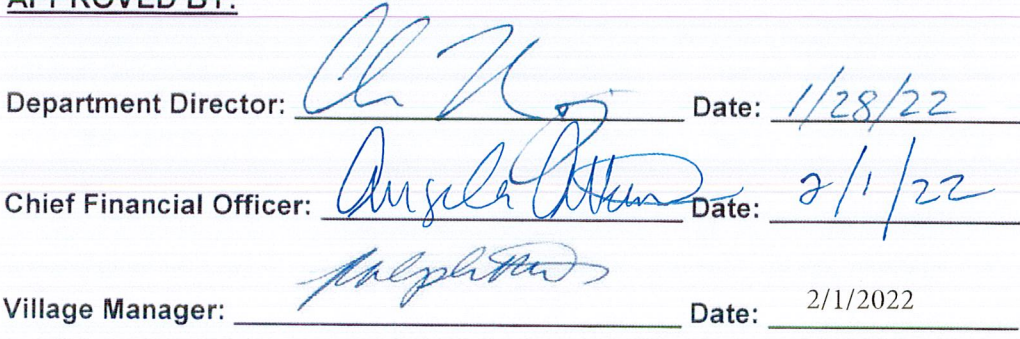 APPROVED BY:
Department Director: Date: 1/28/22
Chief Financial Officer: Angela Date: 2/1/22
Village Manager: Date: 2/1/2022